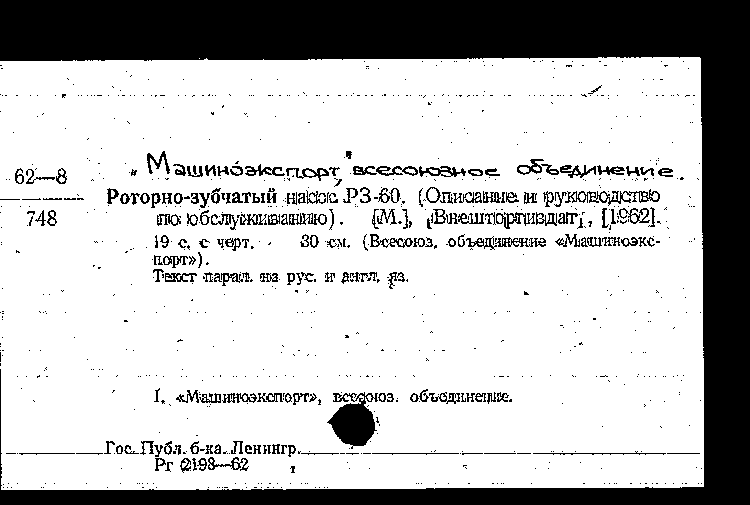 "Машиноэкспорт" всесоюзное объединение.
62—8
Роторно-зубчатый насос РЗ-60. (Описание и руководство
748
по обслуживанию). [М.], „Внешторгиздат", [1962].
19 с. с черт. 30 см. (Всесоюз. объединение «Машиноэкс-
порт»).
Текст парал. на рус. и англ. яз.
I. «Машиноэкспорт», всесоюз. объединение.
Гос. Публ. б-ка. Ленингр.
Рг 2198—62